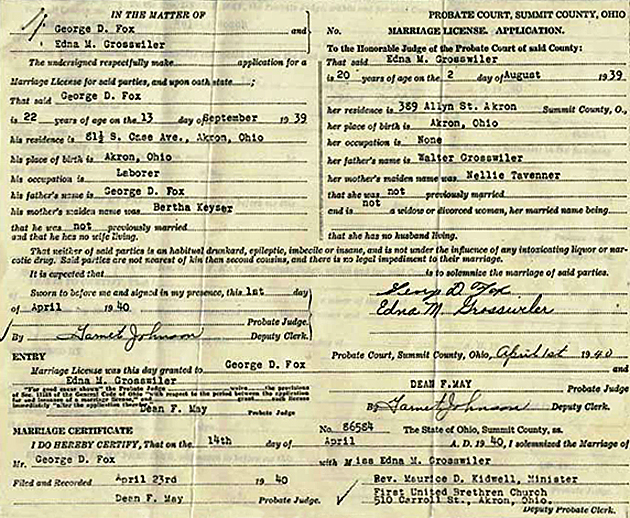 IN THE MATTER OF
George D. Fox and
Edna M. Grosswiler
The undersigned respectfully make application for a
Marriage License for said parties, and upon oath state ;
That said George D. Fox
is 22 years of age on the 13 day of September 19 39
his residence is 81½ S. Case Ave., Akron, Ohio
his place of birth is Akron, Ohio
his occupation is Laborer
his father's name is George D. Fox
his mother's maiden name was Bertha Keyser
that he was not previously married
and that he has no wife living.
PROBATE COURT, SUMMIT COUNTY, OHIO
No. MARRIAGE LICENSE. APPLICATION.
To the Honorable Judge of the Probate Court of said County:
That said Edna M. Grosswiler
is 20 years of age on the 2 day of August 19 39
her residence is 389 Allyn St. Akron Summit County, O.,
her place of birth is Akron, Ohio
her occupation is None
her father's name is Walter Grosswiler
her mother's maiden name was Nellie Tavenner
that she was not previously married
and is not a widow or divorced woman, her married name being
that she has no husband living.
That neither of said parties is an habitual drunkard, epileptic, imbecile or insane, and is not under the influence of any intoxicating liquor or nar-
cotic drug. Said parties are not nearest of kin than second cousins, and there is no legal impediment to their marriage.
It is expected that is to solemnize the marriage of said parties.
Sworn to before me and signed in my presence, this 1st day
of April 19 40
Probate Judge.
By Johnson Deputy Clerk.
George D. Fox
Edna M. Grosswiler
ENTRY
Marriage License was this day granted to George D. Fox
Edna M. Grosswiler
"For good cause shown" the Probate Judge waive the provisions
of Sec. of the General Code of Ohio "with respect to the period between the application
and issuance of a marriage license," grant such license
immediately "after the application therefor."
Dean F. May Probate Judge
Probate Court, Summit County, Ohio, April 1st 19 40
and
DEAN F. MAY Probate Judge
By Johnson Deputy Clerk.
MARRIAGE CERTIFICATE No. 86584 The State of Ohio, Summit County, ss.
I DO HEREBY CERTIFY, That on the 14th day of April A. D. 19 40, I solemnized the Marriage of
Mr. George D. Fox with Miss Edna M. Grosswiler
Filed and Recorded April 23rd 19 40
Dean F. May Probate Judge.
Rev. Maurice D. Kidwell, Minister
First United Brethren Church
510 Carroll St., Akron, Ohio.
Deputy Probate Clerk.